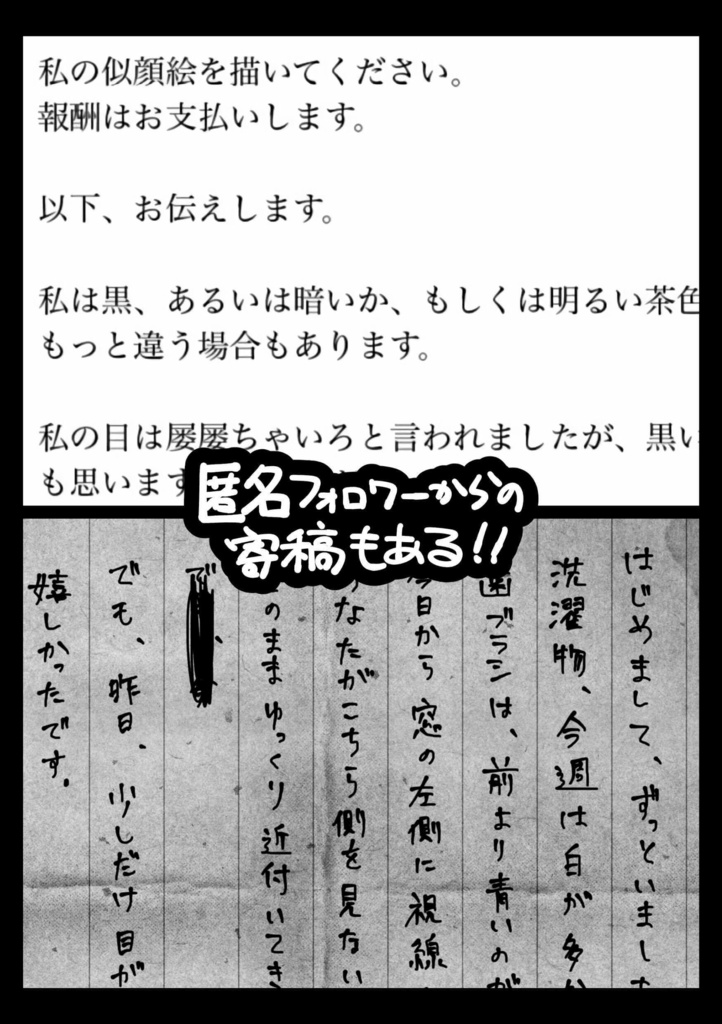 私の似顔絵を描いてください。
報酬はお支払いします。
以下、お伝えします。
私は黒、あるいは暗いか、もしくは明るい茶色
もっと違う場合もあります。
私の目は屡屡ちゃいろと言われましたが、黒い
も思います
匿名フォロワーからの
寄稿もある!!
はじめまして、ずっといました
洗濯物、今週は白が多か
歯ブラシは、前より青いのが
今日から窓の左側に視線
なたがこちら側を見ない
のままゆっくり近付いてき
で
でも、昨日、少しだけ目が
嬉しかったです。